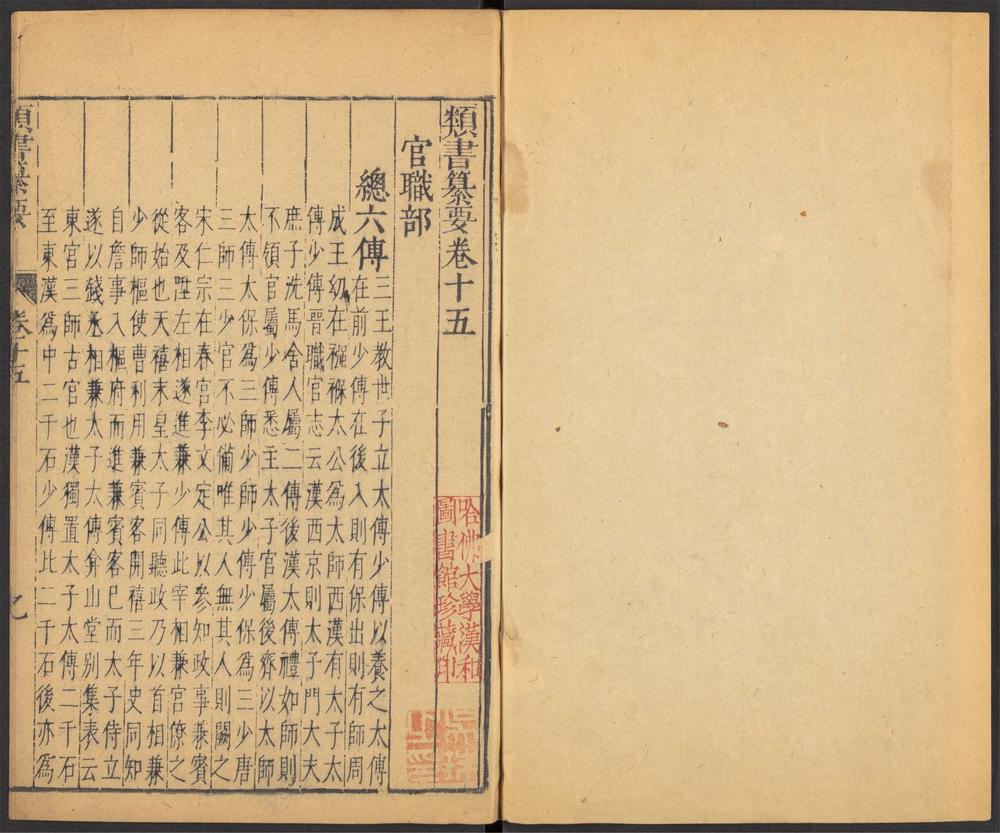 類書纂要卷十五
官職部
總六傅
三王教世子立太傅少傅以養之太傅
在前少傅在後入則有保出則有師周
成王幼在襁褓太公爲太師西漢有太子太
傅少傅晉職官志云漢西京則太子門大夫
庶子洗馬舍人屬二傅後漢太傅禮如師則
不領官屬少傅悉主太子官屬後齊以太師
太傅太保爲三師少師少傅少保爲三少唐
三師三少官不必備唯其人無其人則闕之
宋仁宗在春宮李文定公以參知政事兼賓
客及陞左相遂進兼少傅此宰相兼官僚之
從始也天禧末皇太子同聽政乃以首相兼
少師樞使曹利用兼賓客開禧三年史同知
自詹事入樞府而進兼賓客已而太子侍立
遂以錢丞相兼太子太傅弇山堂別集表云
東宮三師古官也漢獨置太子太傅二千石
至東漢爲中二千石少傅比二千石後亦爲
類書纂要
卷十五
哈佛大學漢和
圖書館珍藏印